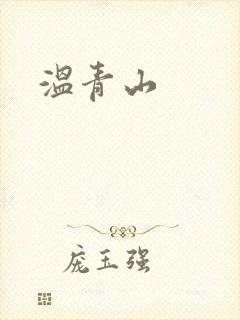 温青山
庞玉强